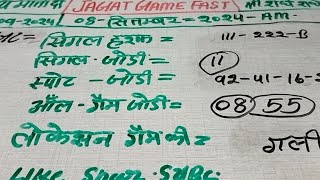 JAGAT GAME FAST
09-2024 08-सितम्बर=2024-AM-
सिंगल हरूफ= 111-222-B
सिंगल-जोडी= 11
स्पोट-जोडी= 92-41-16-
ऑल-गैम जोडी= 08 55
लोकेसन गैम की= गली
LIKE